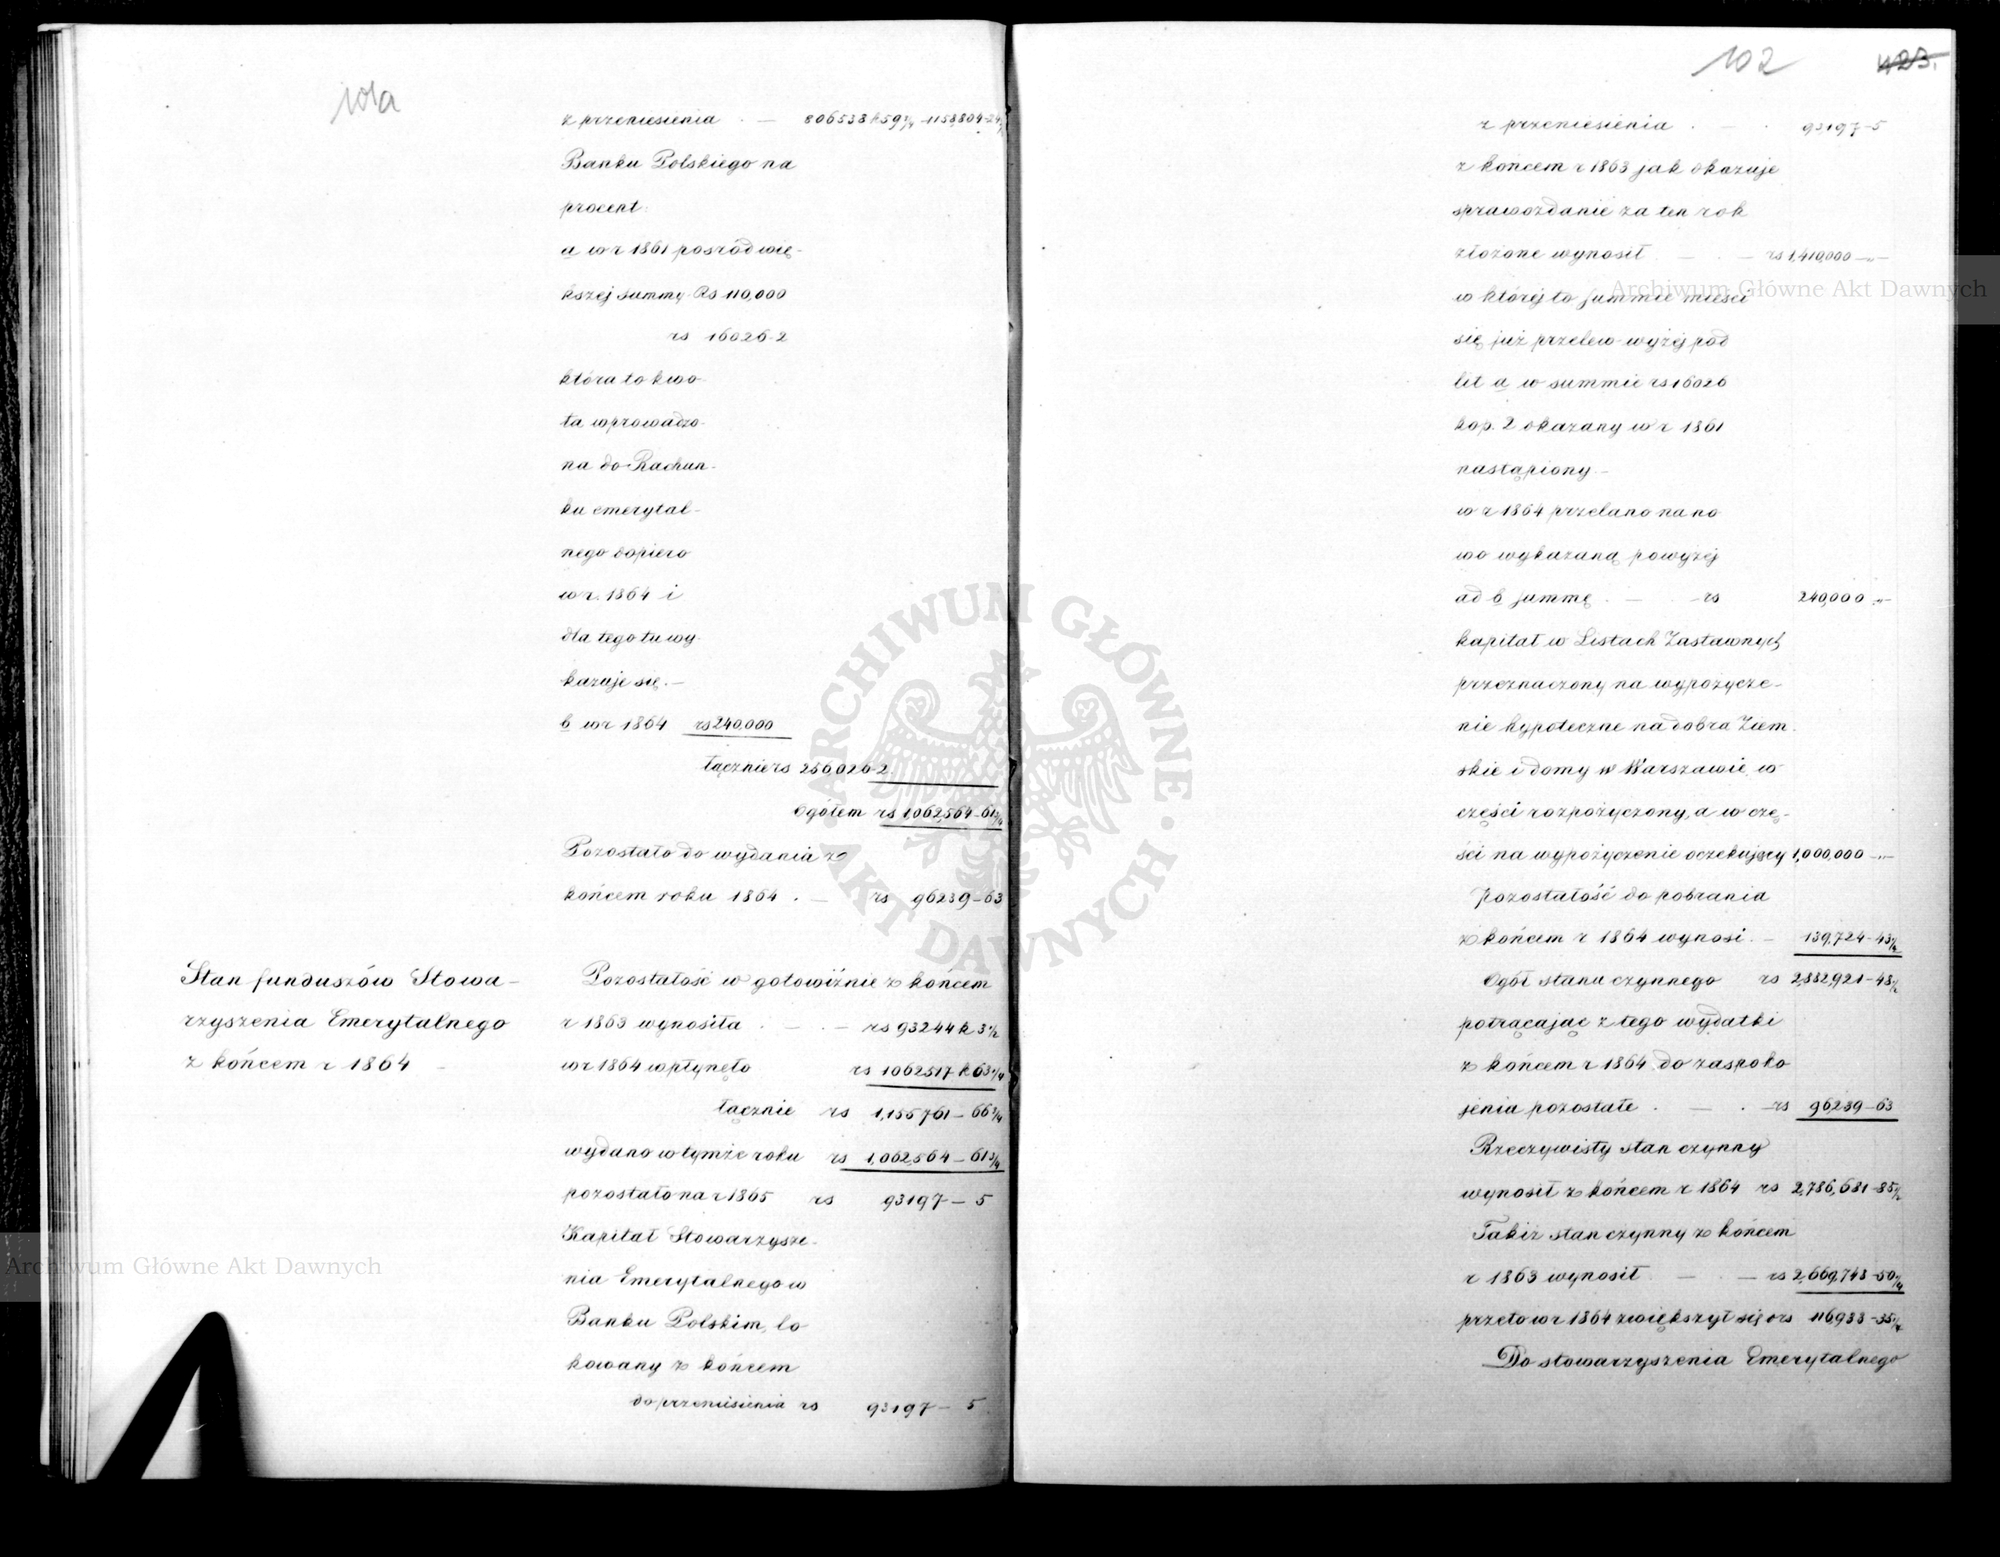 101a
z przeniesienia . — 806538 k 59 3/4 — 1158,804-24
Banku Polskiego na
procent.
a w r 1861 pośród wię-
kszej summy Rs 110,000
rs 16026-2
która to kwo-
ta wprowadzo-
na do Rachun-
ku emerytal-
nego dopiero
w r. 1864 i
dla tego tu wy-
kazuje się. —
b w r 1864 rs 240,000
łącznie rs 256,026-2
Ogółem rs 1,062,564-61 3/4
Pozostało do wydania z
końcem roku 1864 . — rs 96239-63
Stan funduszów Stowa-
rzyszenia Emerytalnego
z końcem r 1864 —
Pozostałość w gotowiźnie z końcem
r 1863 wynosiła . — . — rs 93244 k 3 1/2
w r 1864 wpłynęło rs 1062517 k 63 1/4
łącznie rs 1,155,761-66 3/4
wydano w tymże roku rs 1,062,564-61 3/4
pozostało na r 1865 rs 93197-5
Kapitał Stowarzysze-
nia Emerytalnego w
Banku Polskim, lo
kowany z końcem
do przeniesienia rs 93197-5
102
423.
z przeniesienia . — . 93197-5
z końcem r 1863 jak okazuje
sprawozdanie za ten rok
złożone wynosił — . — rs 1,410,000 — „ —
w której to summie mieści
się już przelew wyżej pod
lit a w summie rs 16026
kop. 2 okazany w r 1861
nastąpiony —
w r 1864 przelano na no
wo wykazaną powyżej
ad b summę . — . — rs 240,000 „ —
kapitał w Listach Zastawnych
przeznaczony na wypożycze-
nie hypoteczne na dobra Ziem-
skie i domy w Warszawie, w
części rozpożyczony, a w czę-
ści na wypożyczenie oczekujący 1,000,000 — „ —
Pozostałość do pobrania
z końcem r 1864 wynosi . — 139,724-43 1/2
Ogół stanu czynnego rs 2,882,921-48 1/2
potrącając z tego wydatki
z końcem r 1864 do zaspoko
jenia pozostałe . — . — rs 96239-63
Rzeczywisty stan czynny
wynosił z końcem r 1864 rs 2,786,681-85 1/2
Takiż stan czynny z końcem
r 1863 wynosił — . — rs 2,669,748-50 1/4
przeto w r 1864 zwiększył się o rs 116933-35 1/4
Do stowarzyszenia Emerytalnego
Archiwum Główne Akt Dawnych
ARCHIWUM GŁÓWNE · AKT DAWNYCH ·
Archiwum Główne Akt Dawnych